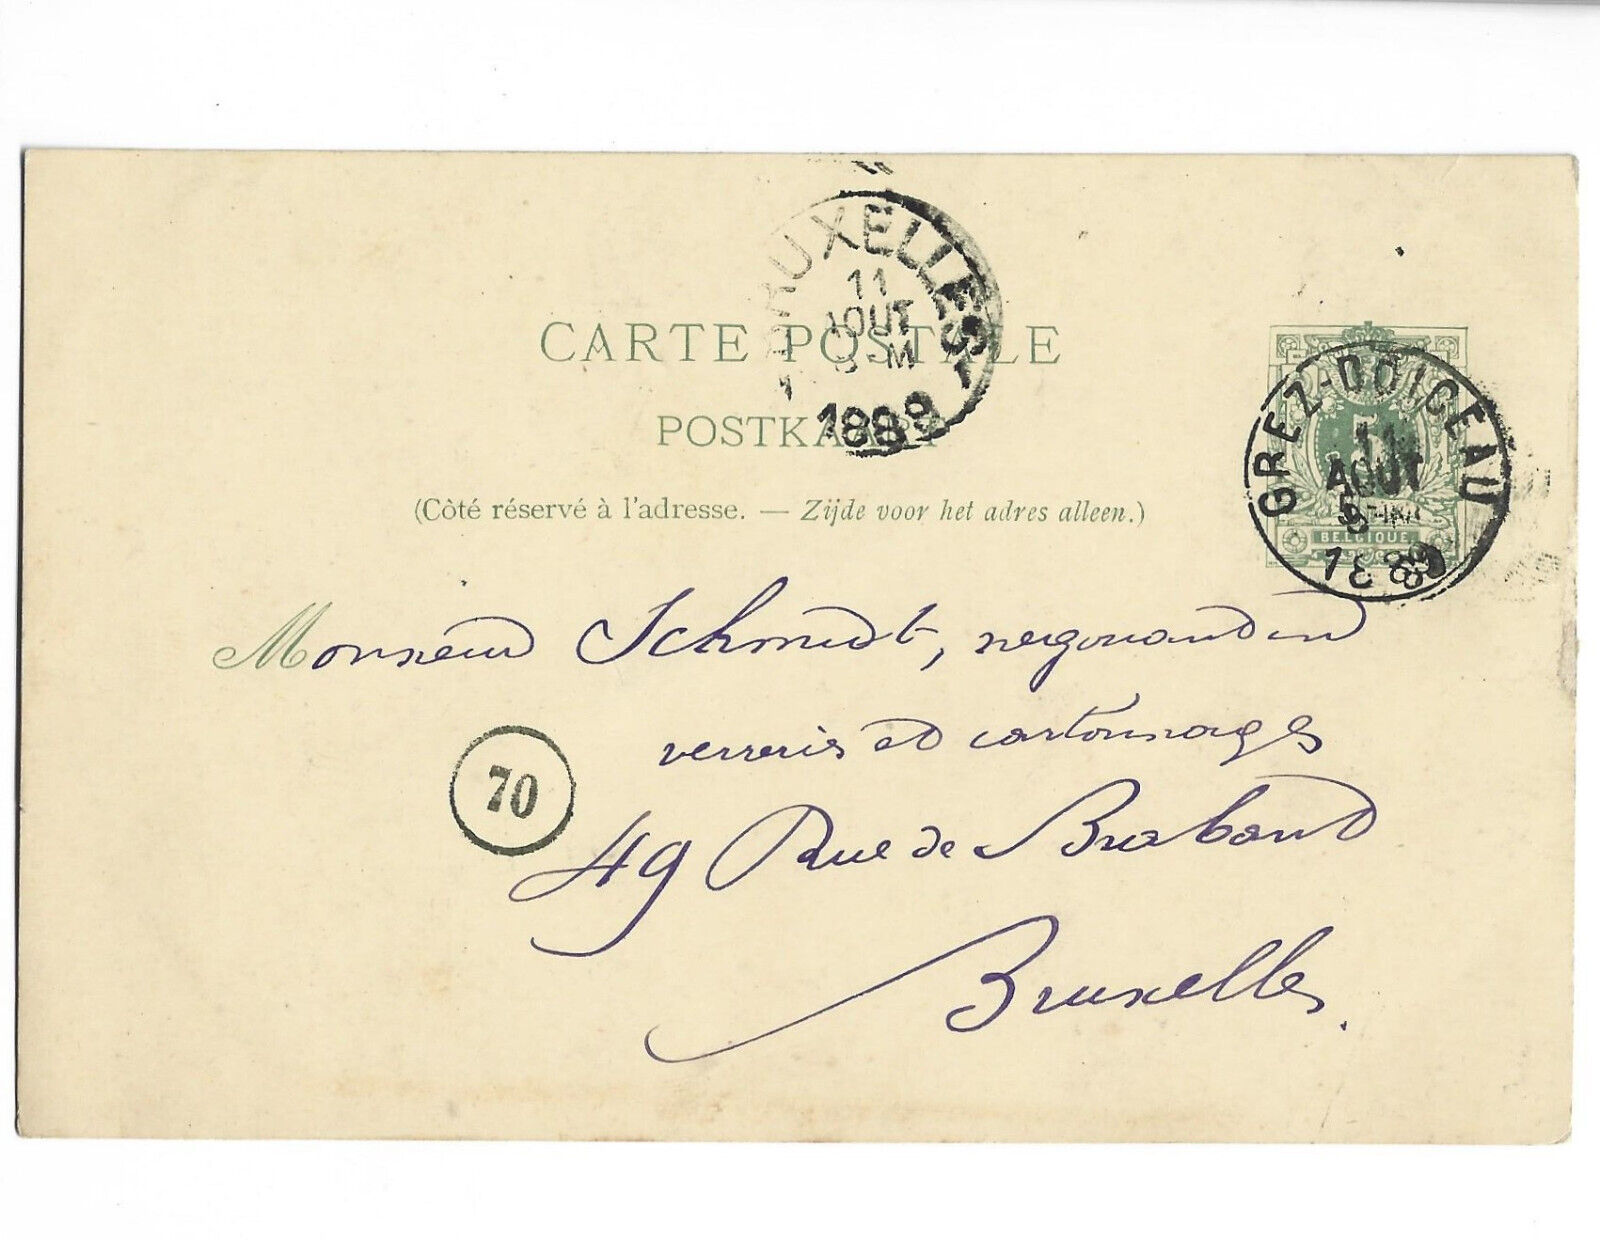 BRUXELLES 1
11
AOUT
8-M
1889
CARTE POSTALE
POSTKAART
(Côté réservé à l'adresse. — Zijde voor het adres alleen.)
GREZ-DOICEAU
11
AOUT
1889
5
BELGIQUE
Monsieur Schmidt, négociant en
verreries et cartonnages
70
49 Rue de Brabant
Bruxelles.